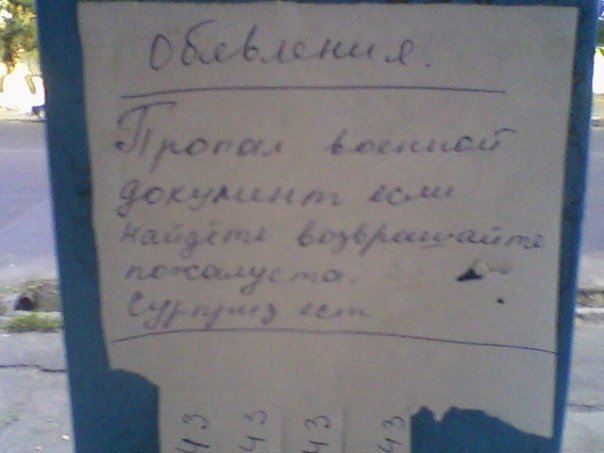 Обявления.
Пропал военной
документ если
найдёте возврашайте
пожалуста.
Сурприз ест
43 43 43 43